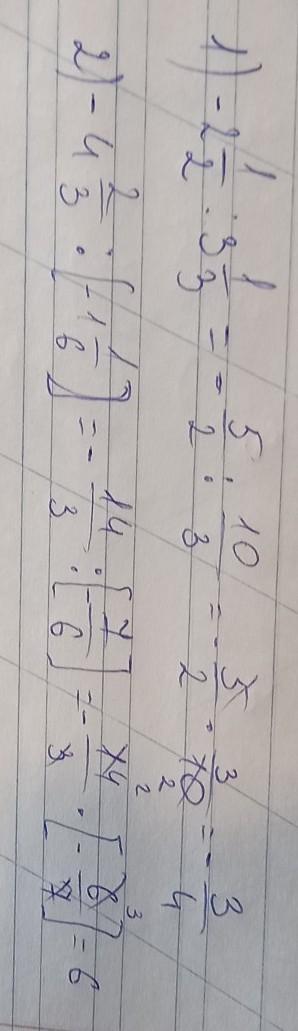 1) - 2 1/2 : 3 1/3 = - 5/2 : 10/3 = - 5/2 · 3/10 2 = - 3/4
2) - 4 2/3 : [- 1 1/6] = - 14/3 : [- 7/6] = - 14/3 2 · [- 6/7 3] = 6